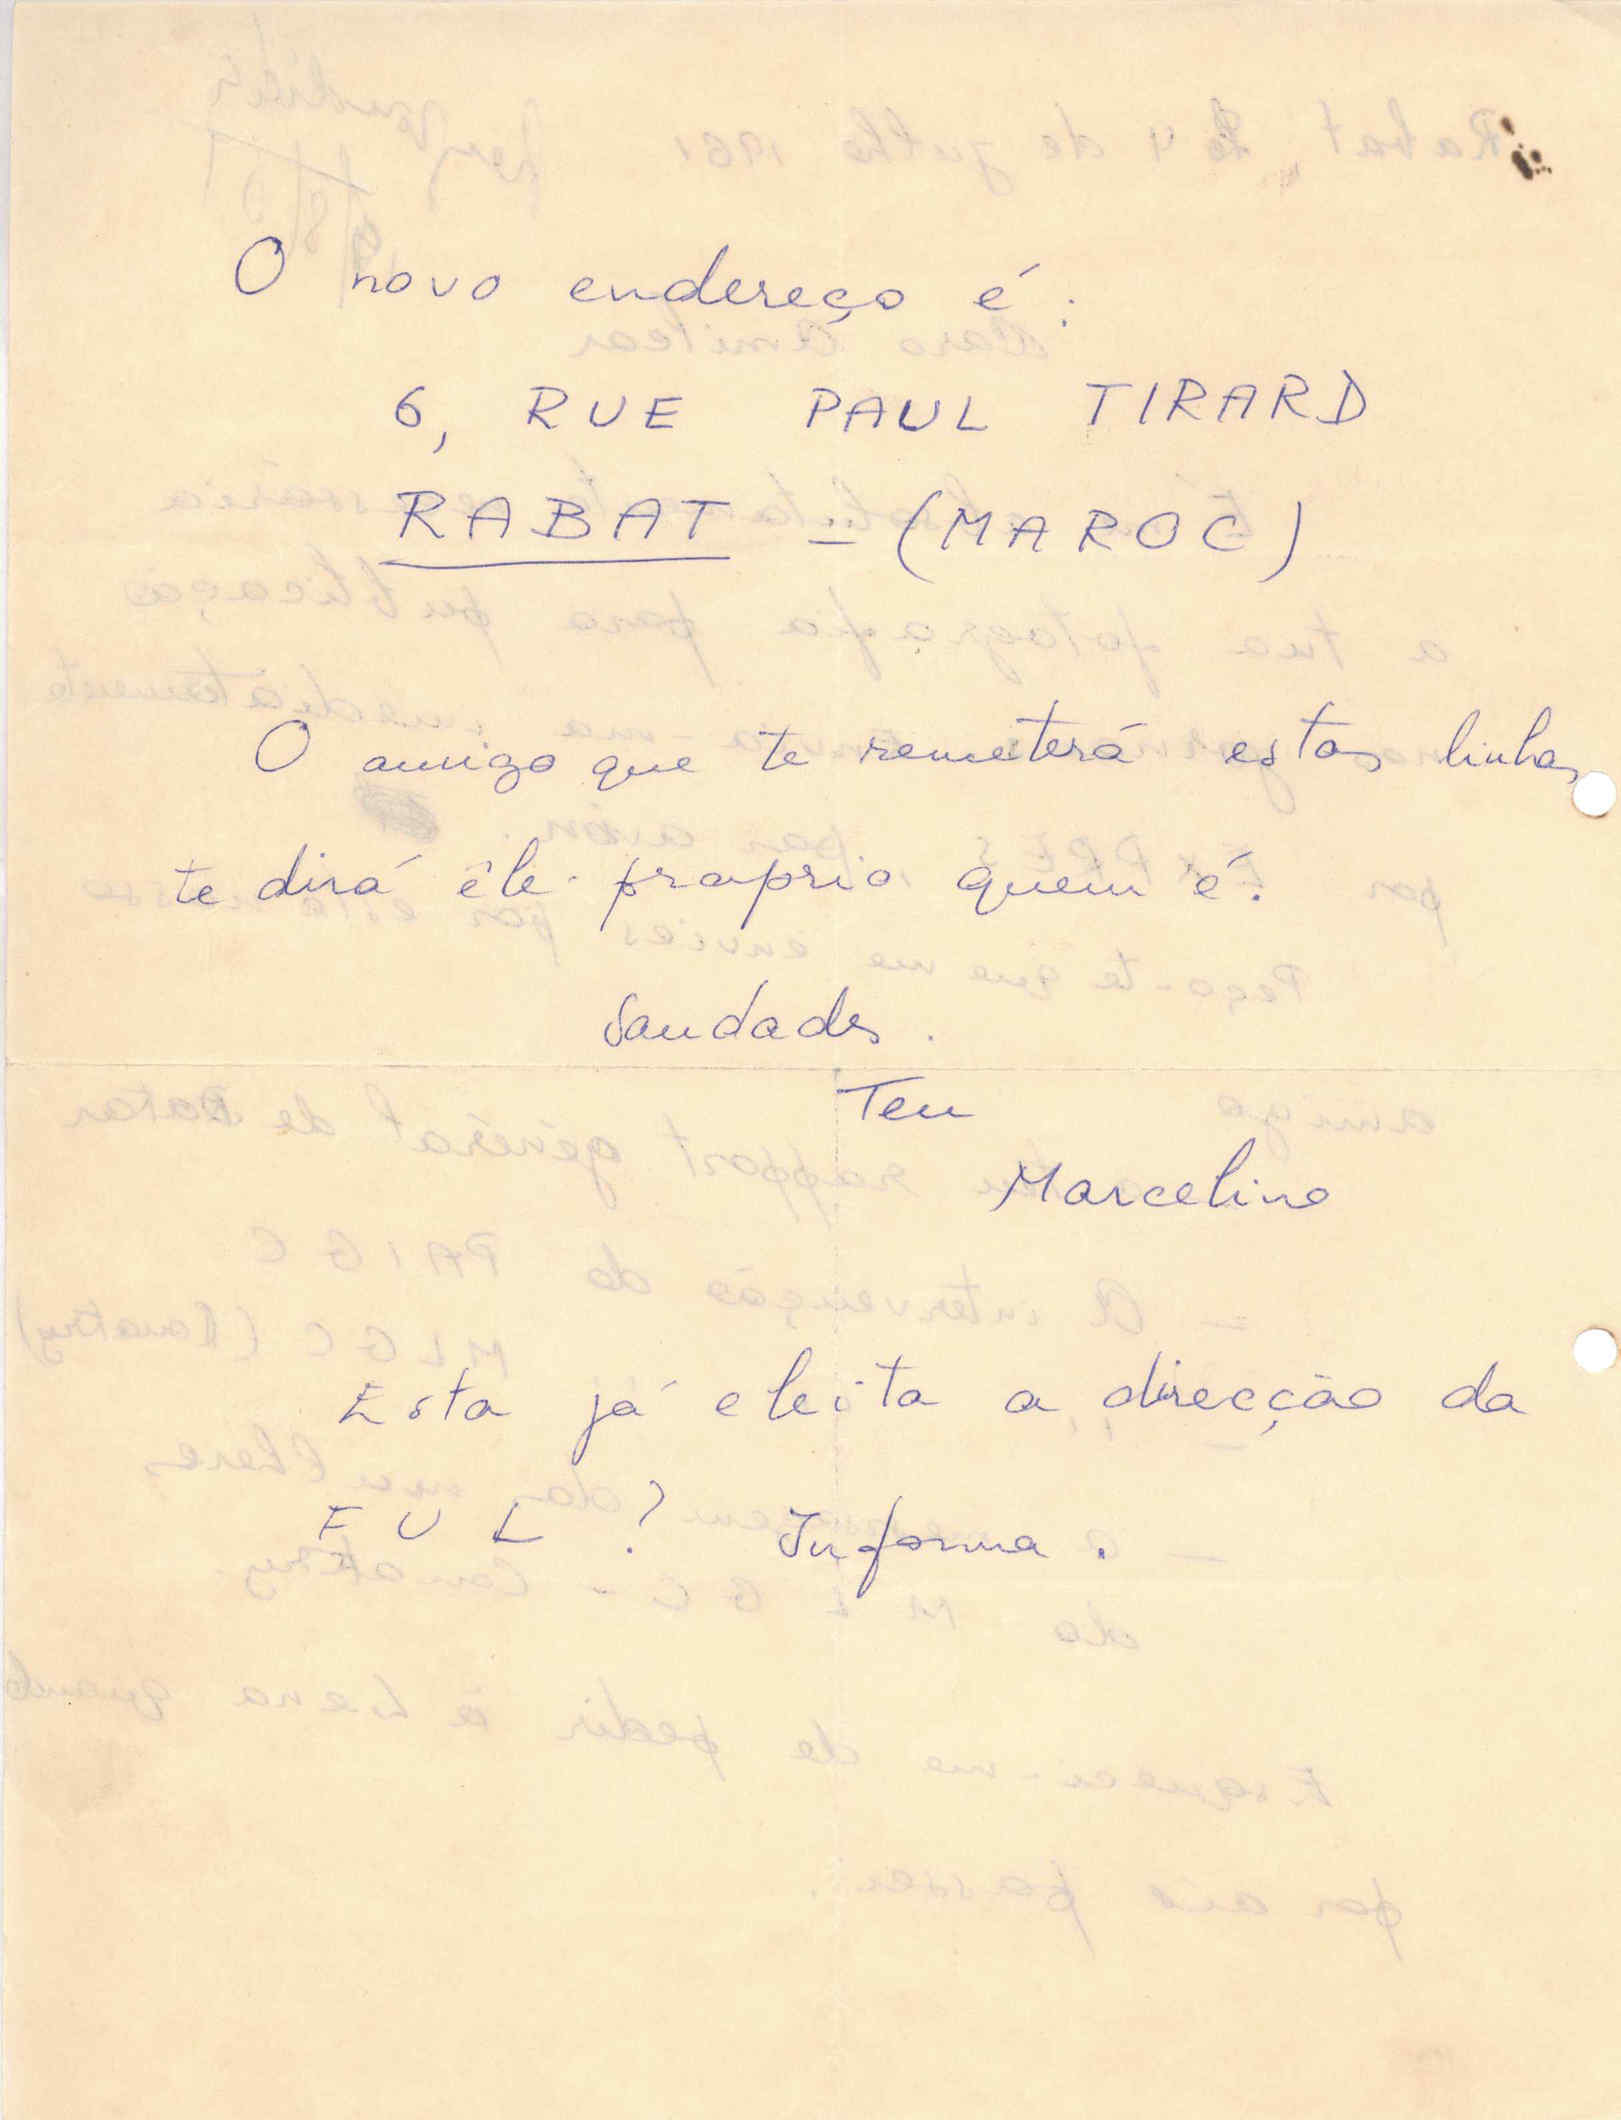 O novo endereço é:
6, RUE PAUL TIRARD
RABAT - (MAROC)
O amigo que te remeterá estas linhas
te dirá êle proprio quem é.
Saudades.
Teu
Marcelino
Esta já eleita a direcção da
FUL? Informa.